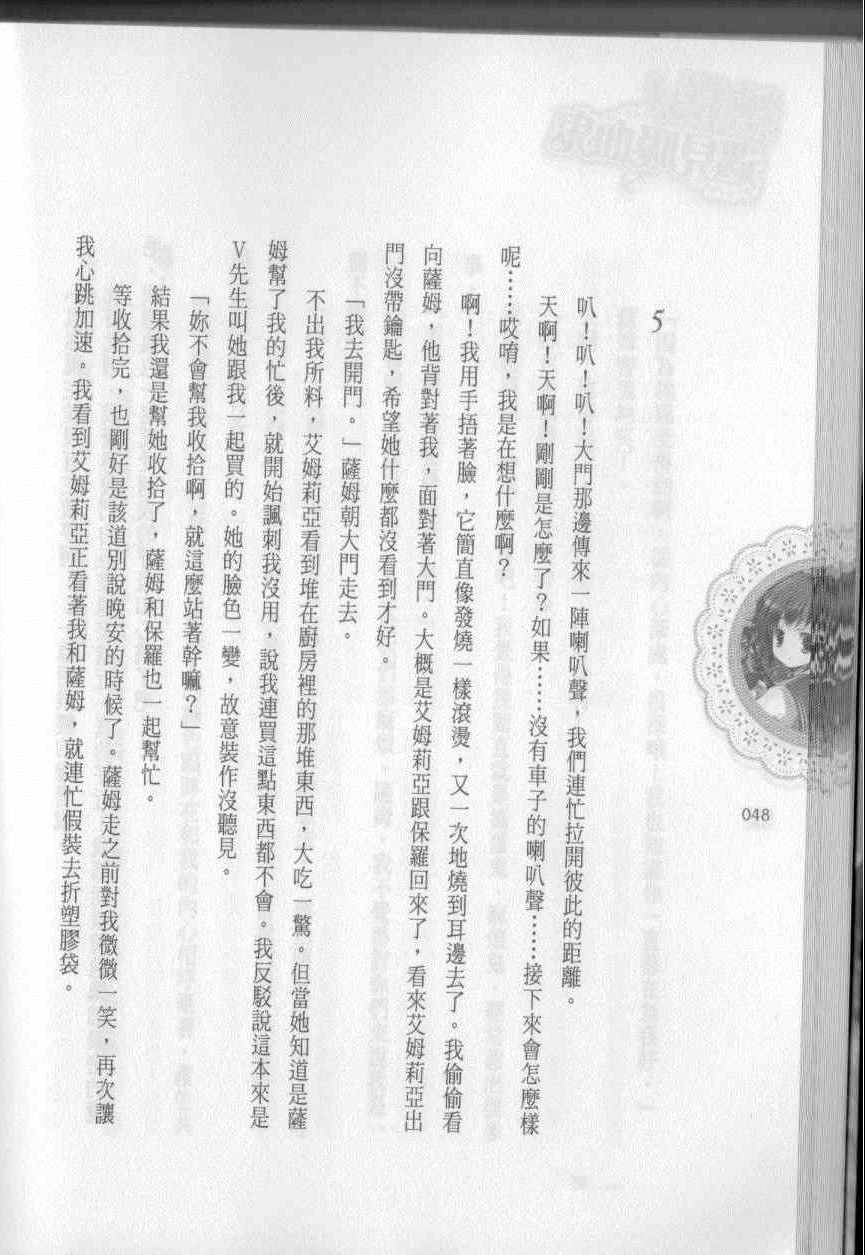 5
叭！叭！叭！大門那邊傳來一陣喇叭聲，我們連忙拉開彼此的距離。
天啊！天啊！剛剛是怎麼了？如果……沒有車子的喇叭聲……接下來會怎麼樣
呢……哎唷，我是在想什麼啊？
啊！我用手捂著臉，它簡直像發燒一樣滾燙，又一次地燒到耳邊去了。我偷偷看
向薩姆，他背對著我，面對著大門。大概是艾姆莉亞跟保羅回來了，看來艾姆莉亞出
門沒帶鑰匙，希望她什麼都沒看到才好。
「我去開門。」薩姆朝大門走去。
不出我所料，艾姆莉亞看到堆在廚房裡的那堆東西，大吃一驚。但當她知道是薩
姆幫了我的忙後，就開始諷刺我沒用，說我連買這點東西都不會。我反駁說這本來是
V先生叫她跟我一起買的。她的臉色一變，故意裝作沒聽見。
「妳不會幫我收拾啊，就這麼站著幹嘛？」
結果我還是幫她收拾了，薩姆和保羅也一起幫忙。
等收拾完，也剛好是該道別說晚安的時候了。薩姆走之前對我微微一笑，再次讓
我心跳加速。我看到艾姆莉亞正看著我和薩姆，就連忙假裝去折塑膠袋。
048